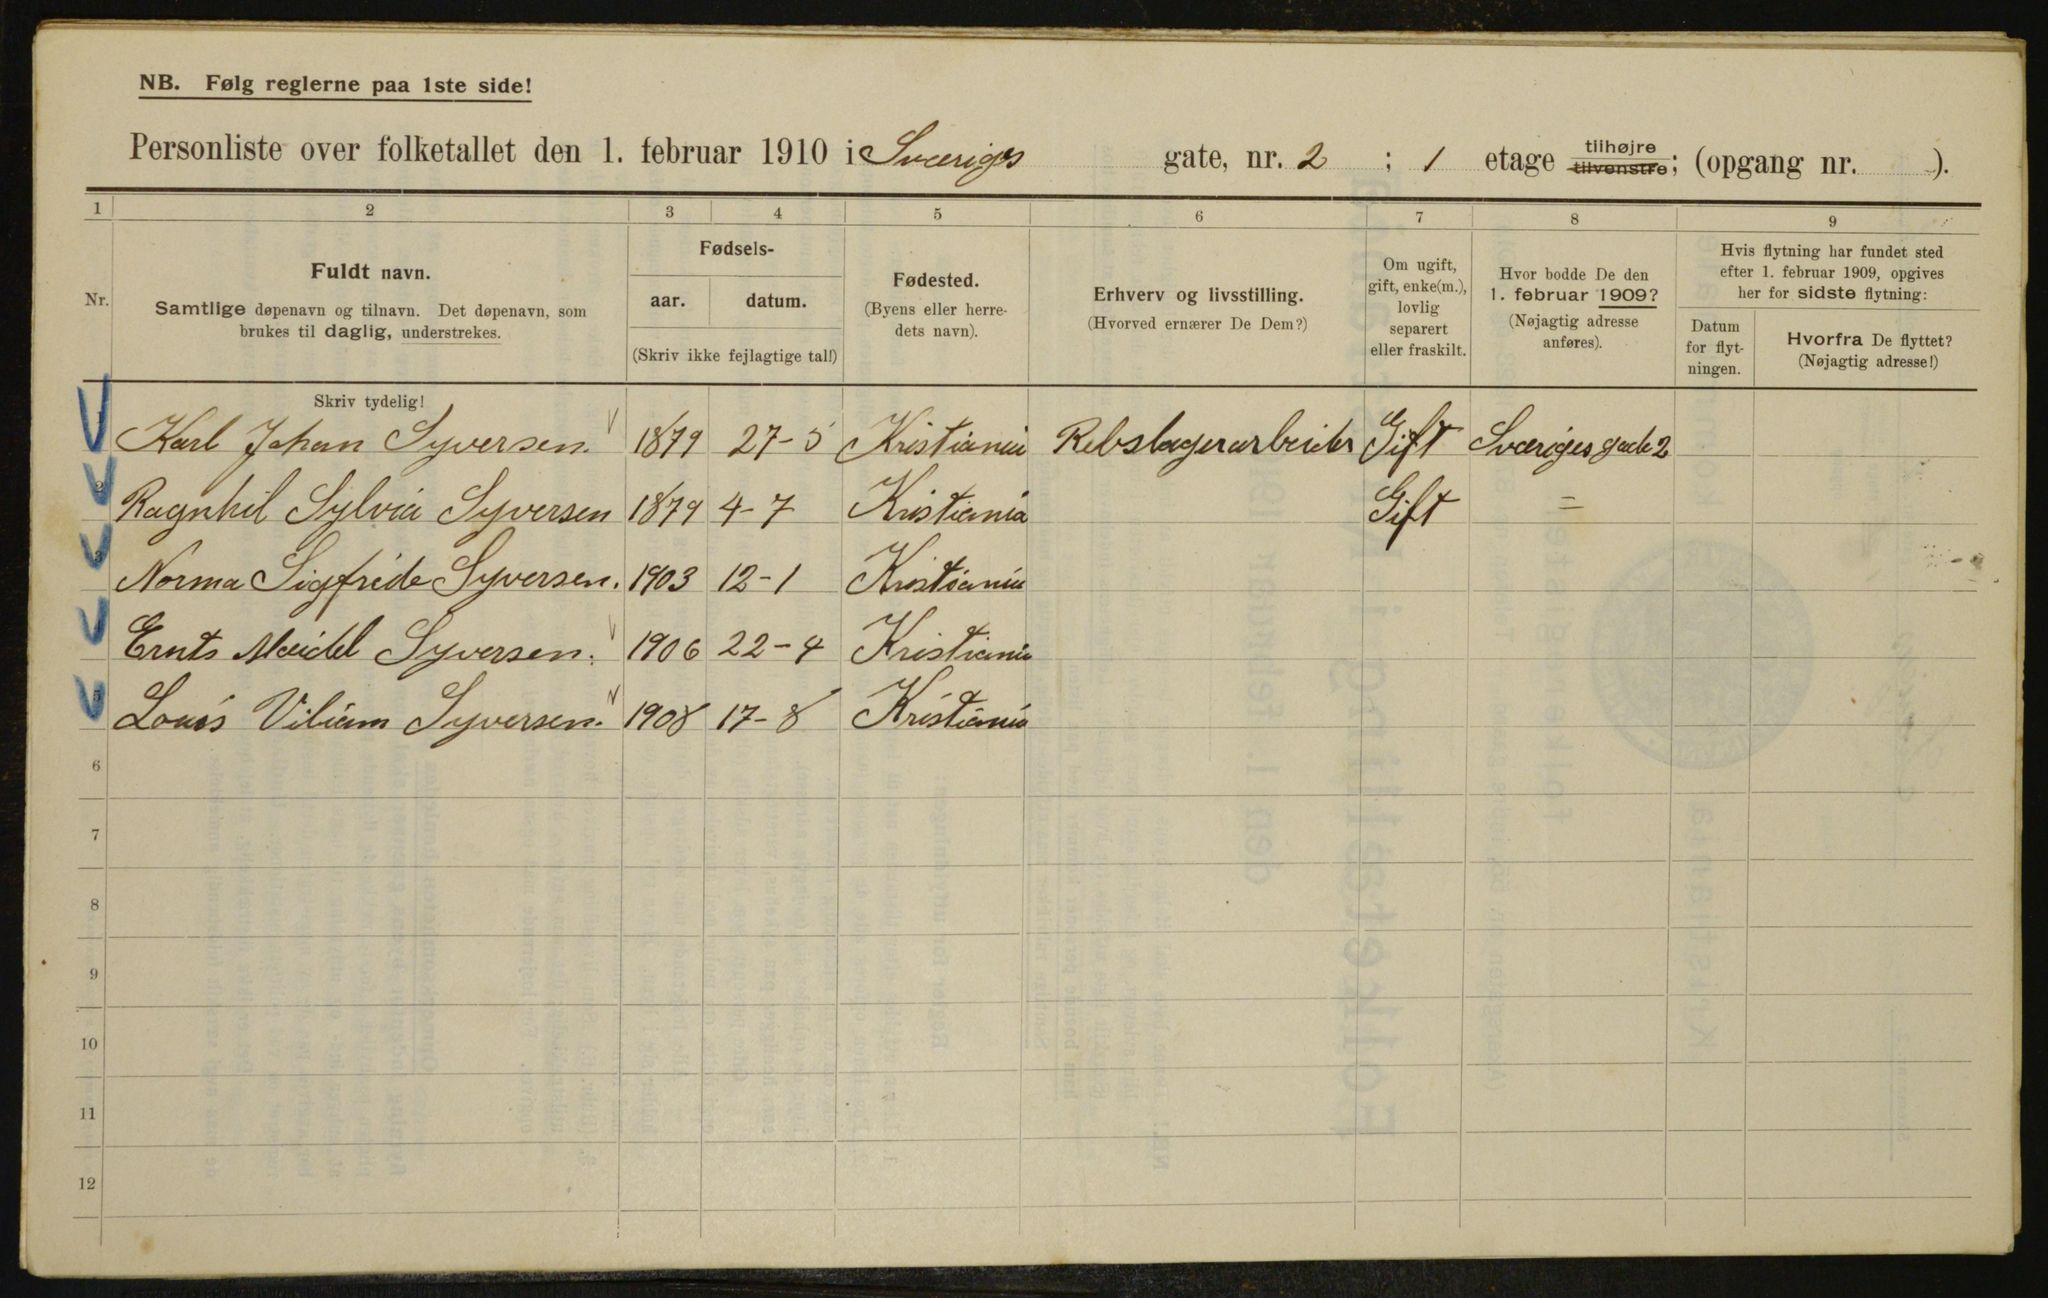 NB. Følg reglerne paa 1ste side!
Personliste over folketallet den 1. februar 1910 i Sværiges gate, nr. 2 ; 1 etage tilhøjre tilvenstre; (opgang nr. ).
1 2 3 4 5 6 7 8 9
Nr.
Fuldt navn.
Samtlige døpenavn og tilnavn. Det døpenavn, som
brukes til daglig, understrekes.
Fødsels-
aar. datum.
(Skriv ikke fejlagtige tal!)
Fødested.
(Byens eller herre-
dets navn).
Erhverv og livsstilling.
(Hvorved ernærer De Dem?)
Om ugift,
gift, enke(m.),
lovlig
separert
eller fraskilt.
Hvor bodde De den
1. februar 1909?
(Nøjagtig adresse
anføres).
Hvis flytning har fundet sted
efter 1. februar 1909, opgives
her for sidste flytning:
Datum
for flyt-
ningen.
Hvorfra De flyttet?
(Nøjagtig adresse!)
Skriv tydelig!
1 Karl Johan Syversen. 1879 27-5 Kristiania Rebslagerarbeider Gift Sværiges gade 2
2 Ragnhil Sylvia Syversen 1879 4-7 Kristiania Gift =
3 Norma Sigfride Syversen. 1903 12-1 Kristiania
4 Ernts Meidel Syversen. 1906 22-4 Kristiania
5 Louis Viliam Syversen. 1908 17-8 Kristiania
6
7
8
9
10
11
12